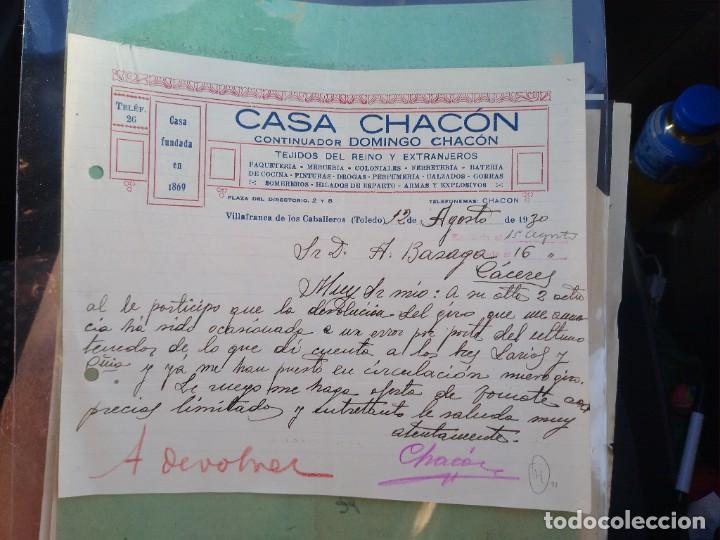 TELÉF.
26
Casa
fundada
en
1869
CASA CHACÓN
CONTINUADOR DOMINGO CHACÓN
TEJIDOS DEL REINO Y EXTRANJEROS
PAQUETERIA - MERCERIA - COLONIALES - FERRETERIA - BATERIA
DE COCINA - PINTURAS - DROGAS - PERFUMERIA - CALZADOS - GORRAS
SOMBREROS - HILADOS DE ESPARTO - ARMAS Y EXPLOSIVOS
PLAZA DEL DIRECTORIO, 2 Y 8
TELEFONEMAS: CHACON
Villafranca de los Caballeros (Toledo) 12 de Agosto de 1930
15 Agosto
16 "
Sr D. A. Basaga
Cáceres
Muy Sr mio: a su atta 2 actu
al le participo que la devolución del giro que me anun
cia ha sido ocasionada a un error por parte del ultimo
tenedor de lo que di cuenta a los Sres Larios y
Cñia y ya me han puesto en circulación nuevo giro.
Le ruego me haga oferta de tomate con
precios limitados y entretanto le saluda muy
atentamente.
A devolver
Chacón
todocoleccion
todocoleccion.net